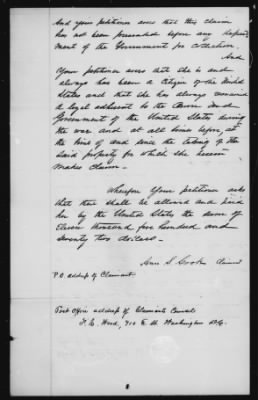 And your petitioner avers that this claim
has not been presented before any depart
ment of the Government for collection
And
Your petitioner avers that she is and
always has been a Citizen of the United
States and that she has always remained
a loyal adherent to the Government
Government of the United States during
the war and at all times before, at
the time of and since the taking of the
said property for which she herein
makes claim.
Wherefore Your petitioner asks
that there shall be allowed and paid
her by the United States the sum of
Eleven thousand five hundred and
seventy two dollars.
Ann S. Cook Claimant
P.O. address of Claimant.
Post Office address of Claimants Counsel
710 E St. Washington D.C.